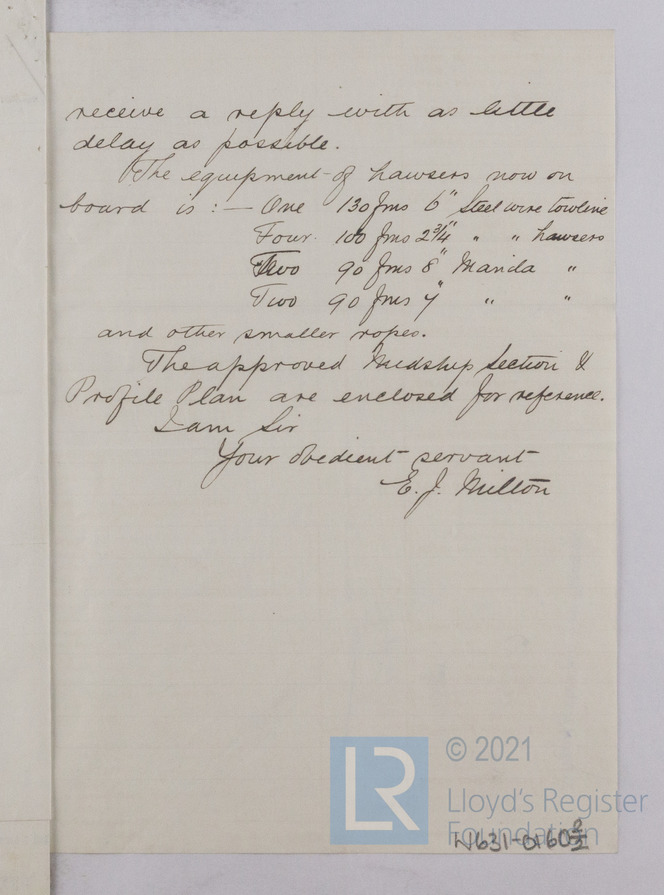 receive a reply with as little
delay as possible.
The equipment of hawsers now on
board is :— One 130 fms 6" Steel wire towline
Four 100 fms 2 3/4" " " hawsers
Two 90 fms 8" Manila "
Two 90 fms 7" " "
and other smaller ropes.
The approved Midship Section &
Profile Plan are enclosed for reference.
I am Sir
Your obedient servant
E. J. Milton
LR
© 2021
Lloyd's Register
Foundation
W631-0160 2/2